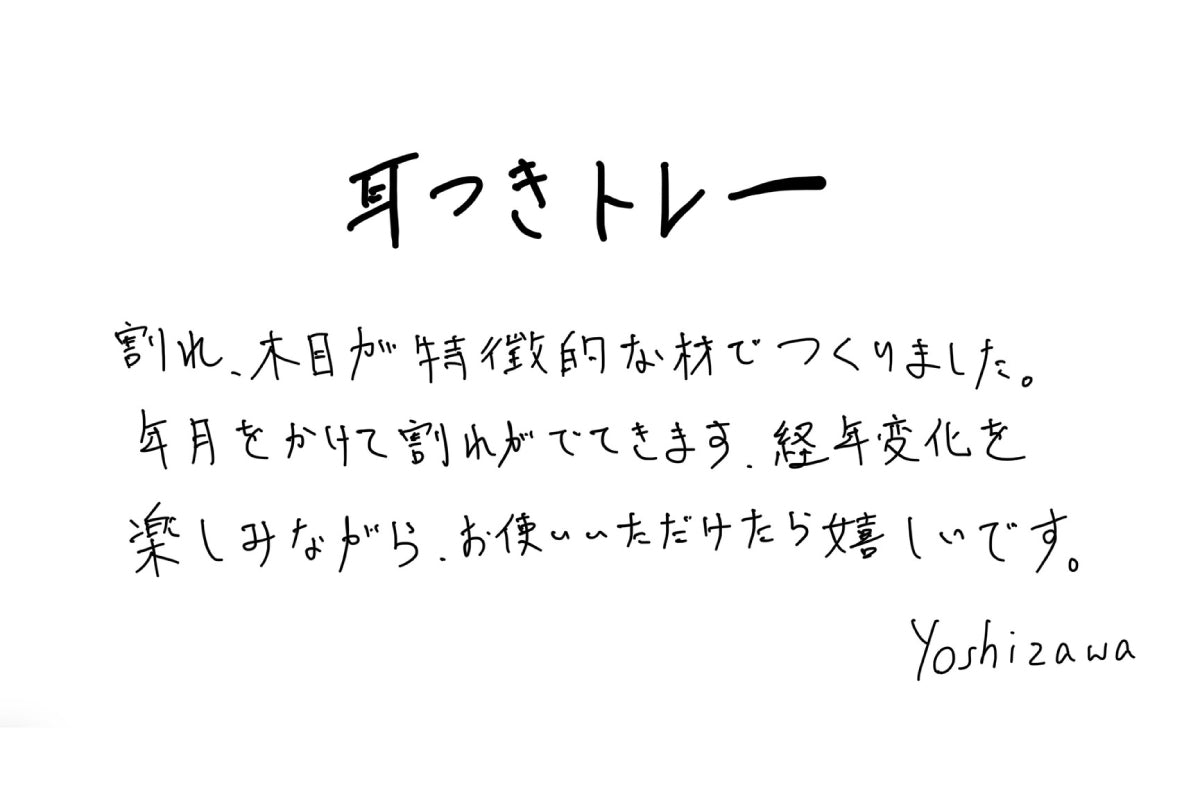 耳つきトレー
割れ、木目が特徴的な材でつくりました。
年月をかけて割れがでてきます、経年変化を
楽しみながら、お使いいただけたら嬉しいです。
Yoshizawa